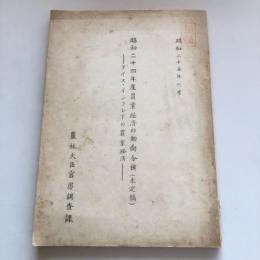 昭和二十五年六月
昭和二十四年度農業経済の動向分析(未定稿)
――ディス・インフレ下の農業経済――
農林大臣官房調査課